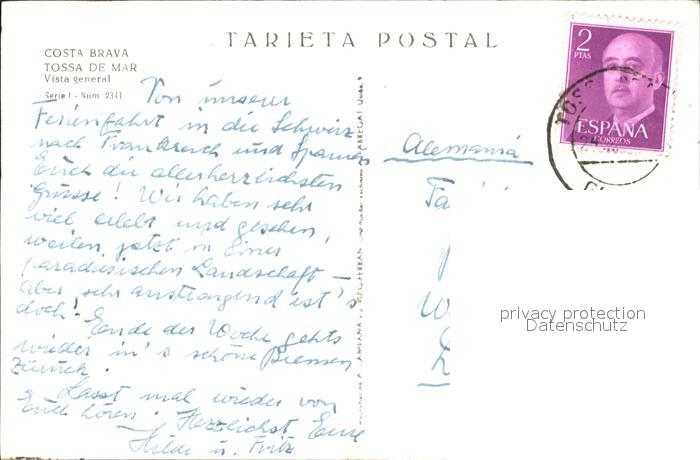 TARJETA POSTAL
COSTA BRAVA
TOSSA DE MAR
Vista general
Serie I - Núm. 2341
Von unserer
Ferienfahrt in die Schweiz
nach Frankreich und Spanien
Euch die allerherzlichsten
Grüsse! Wir haben sehr
viel erlebt und gesehen,
weilen jetzt in einer
paradiesischen Landschaft –
aber sehr anstrengend ist's
doch! Ende der Woche gehts
wieder in's schöne Bremen
zurück.
Lasst mal wieder von
Euch hören. Herzlichst Eure
Hilde u. Fritz
Alemania
Fa
W
2
PTAS
ESPAÑA
CORREOS
privacy protection
Datenschutz